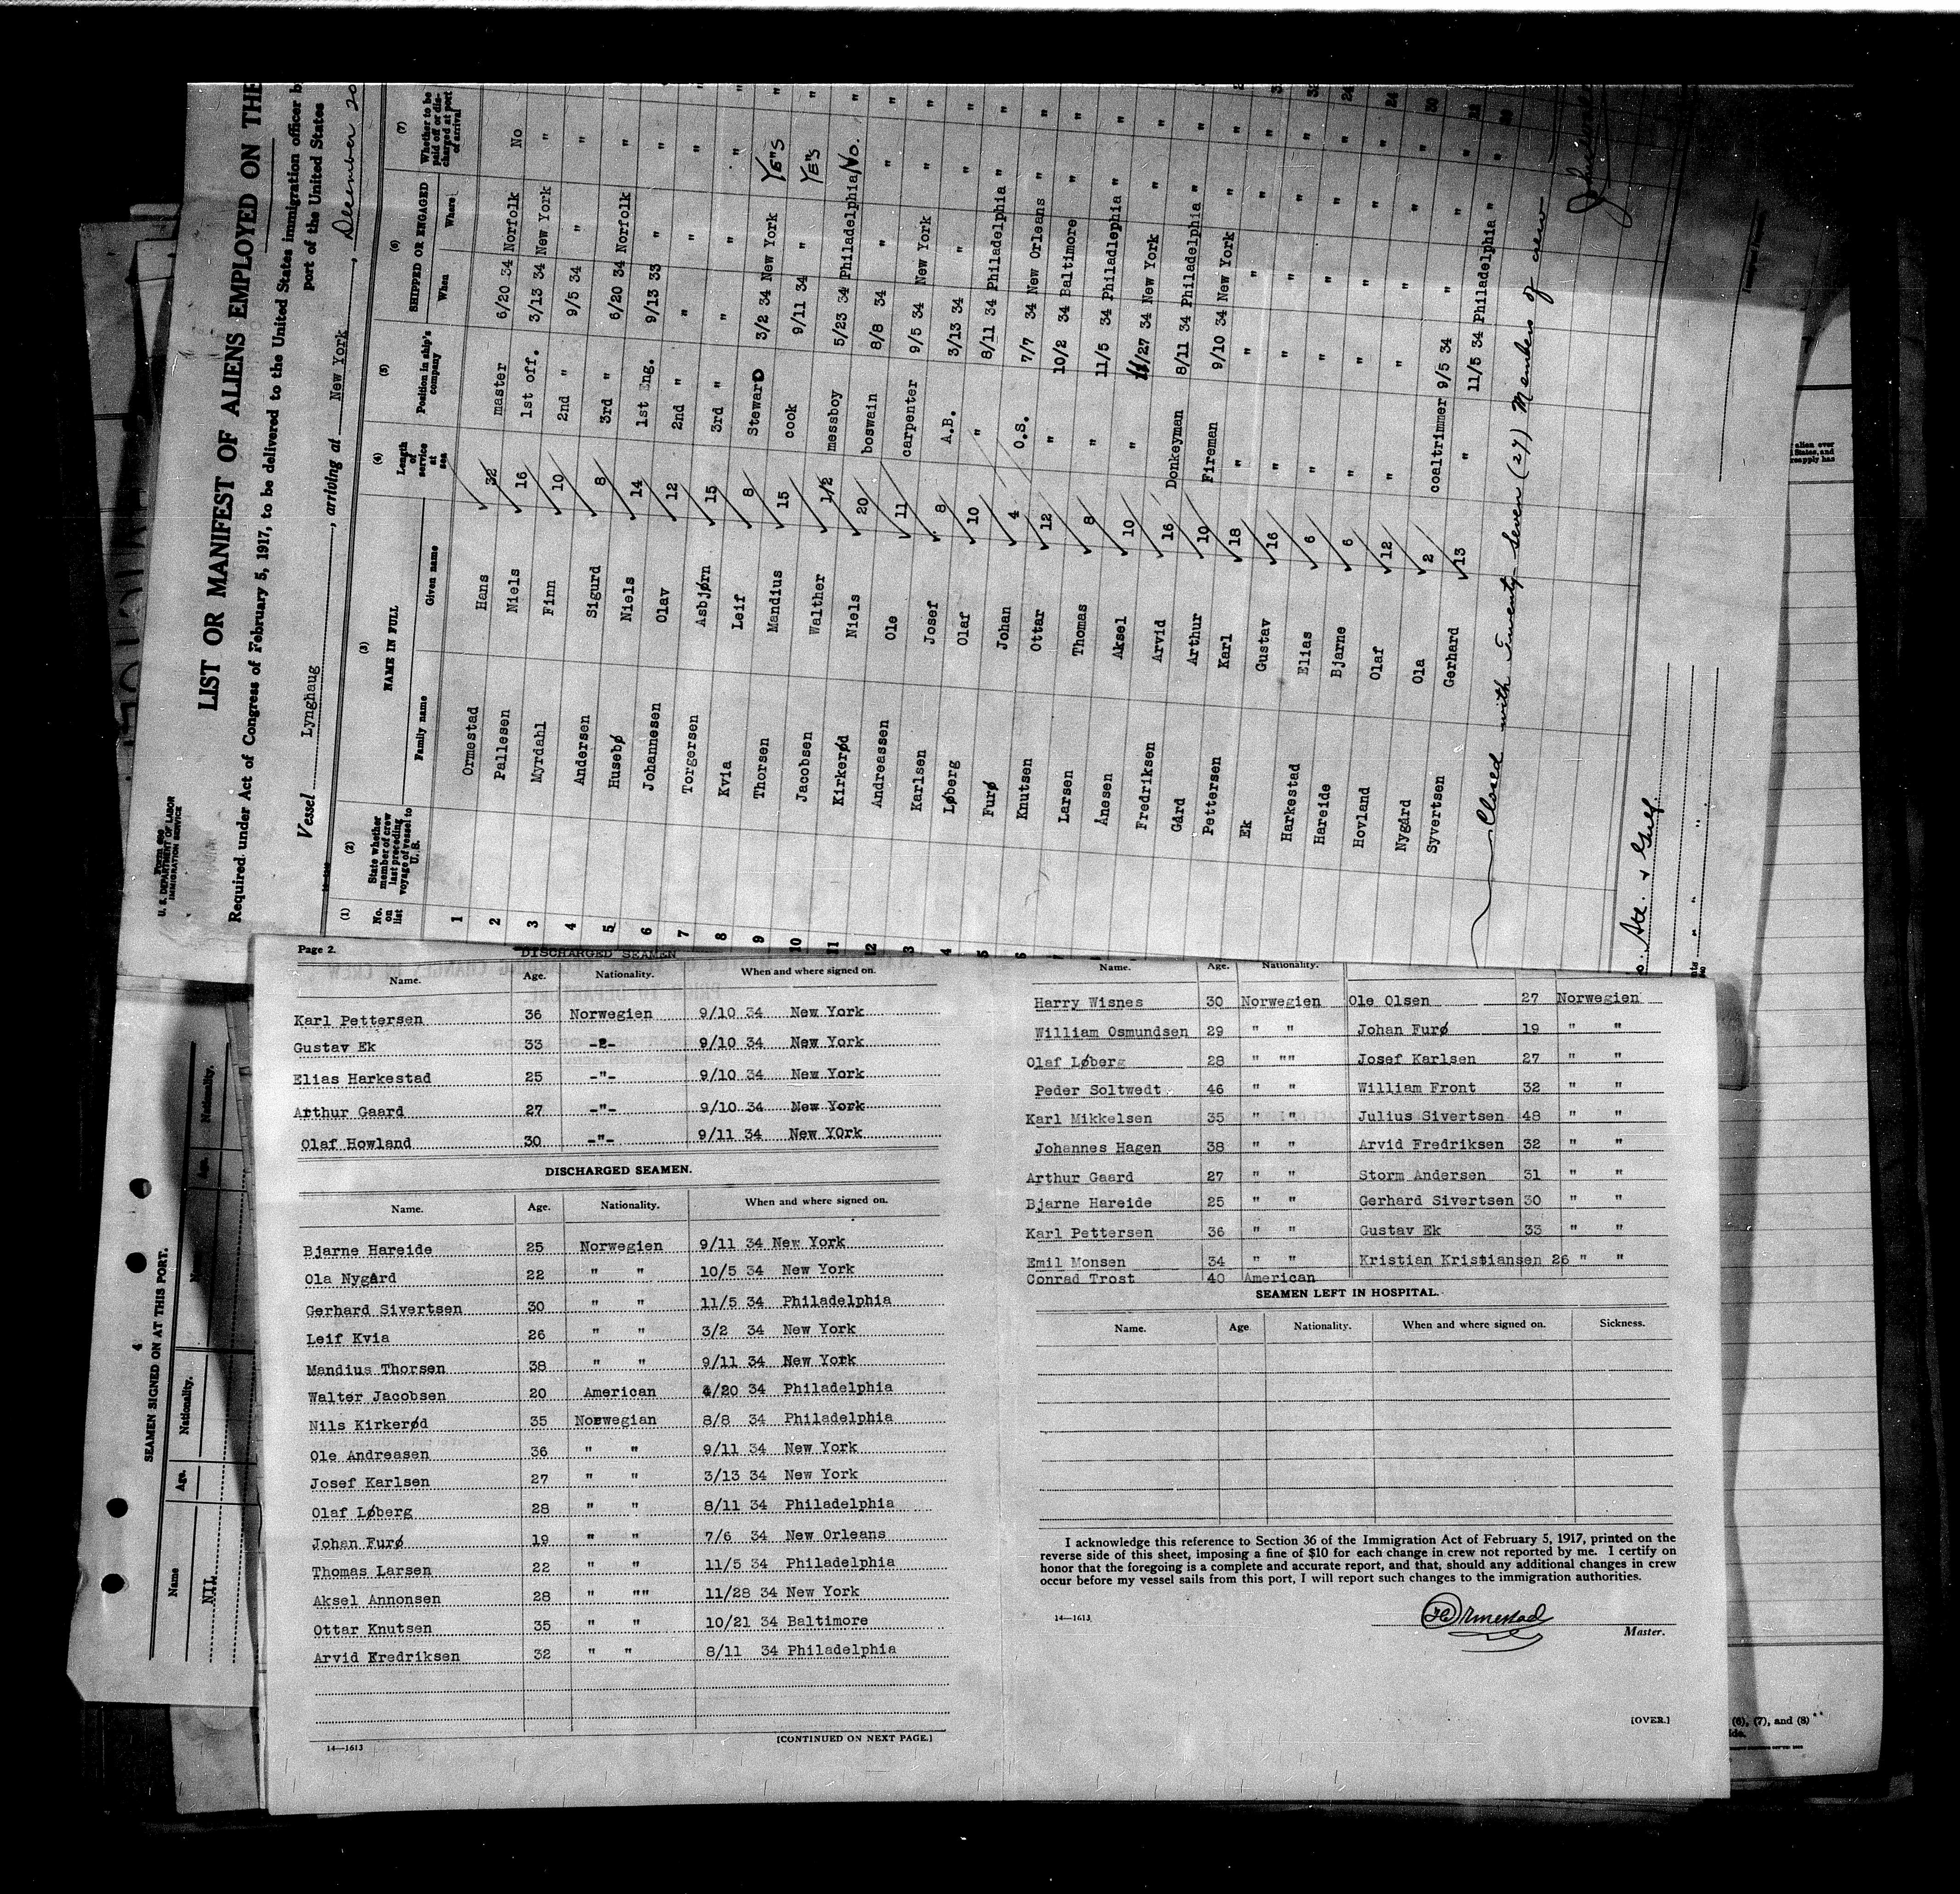 Form 689
U. S. DEPARTMENT OF LABOR
IMMIGRATION SERVICE
LIST OR MANIFEST OF ALIENS EMPLOYED ON THE
Required under Act of Congress of February 5, 1917, to be delivered to the United States immigration officer b
port of the United States
Vessel Lynghaug, arriving at New York, December 20
(1) (2) (3) (4) (5) (6) (7)
No. on list State whether member of crew last preceding voyage of vessel to U. S. NAME IN FULL Length of service at sea Position in ship's company SHIPPED OR ENGAGED Whether to be paid off or discharged at port of arrival
Family name Given name When Where
1 Ormestad Hans 32 master 6/20 34 Norfolk No
2 Pallesen Niels 16 1st off. 3/13 34 New York "
3 Myrdahl Finn 10 2nd " 9/5 34 " "
4 Andersen Sigurd 8 3rd " 6/20 34 Norfolk "
5 Husebø Niels 14 1st Eng. 9/13 33 " "
6 Johannesen Olav 12 2nd " " " "
7 Torgersen Asbjørn 15 3rd " " " "
8 Kvia Leif 8 Steward 3/2 34 New York " YES
9 Thorsen Mandius 15 cook 9/11 34 " " YES
10 Jacobsen Walther 1/2 messboy 5/23 34 Philadelphia No. "
11 Kirkerød Niels 20 boswain 8/8 34 " "
12 Andreassen Ole 11 carpenter 9/5 34 New York "
3 Karlsen Josef 8 A.B. 3/13 34 " "
4 Løberg Olaf 10 " 8/11 34 Philadelphia "
5 Furø Johan 4 O.S. 7/7 34 New Orleans "
6 Knutsen Ottar 12 " 10/2 34 Baltimore "
Larsen Thomas 8 " 11/5 34 Philadlephia "
Anesen Aksel 10 " 11/27 34 New York "
Fredriksen Arvid 16 Donkeyman 8/11 34 Philadelphia "
Gård Arthur 10 Fireman 9/10 34 New York "
Pettersen Karl 18 " " " "
Ek Gustav 16 " " " "
Harkestad Elias 6 " " " "
Hareide Bjarne 6 " " " "
Hovland Olaf 12 " " " "
Nygård Ola 2 coaltrimmer 9/5 34 " "
Syvertsen Gerhard 13 " 11/5 34 Philadelphia "
Closed with Twenty-Seven (27) Members of crew
Page 2.
DISCHARGED SEAMEN
Name. Age. Nationality. When and where signed on.
Karl Pettersen 36 Norwegien 9/10 34 New York
Gustav Ek 33 -"- 9/10 34 New York
Elias Harkestad 25 -"- 9/10 34 New York
Arthur Gaard 27 -"- 9/10 34 New York
Olaf Howland 30 -"- 9/11 34 New YOrk
DISCHARGED SEAMEN.
Name. Age. Nationality. When and where signed on.
Bjarne Hareide 25 Norwegien 9/11 34 New York
Ola Nygård 22 " " 10/5 34 New York
Gerhard Sivertsen 30 " " 11/5 34 Philadelphia
Leif Kvia 26 " " 3/2 34 New York
Mandius Thorsen 38 " " 9/11 34 New York
Walter Jacobsen 20 American 4/20 34 Philadelphia
Nils Kirkerød 35 Norwegian 8/8 34 Philadelphia
Ole Andreasen 36 " " 9/11 34 New York
Josef Karlsen 27 " " 3/13 34 New York
Olaf Løberg 28 " " 8/11 34 Philadelphia
Johan Furø 19 " " 7/6 34 New Orleans
Thomas Larsen 22 " " 11/5 34 Philadelphia
Aksel Annonsen 28 " "" 11/28 34 New York
Ottar Knutsen 35 " " 10/21 34 Baltimore
Arvid Fredriksen 32 " " 8/11 34 Philadelphia
14—1613 [CONTINUED ON NEXT PAGE.]
Name. Age. Nationality.
Harry Wisnes 30 Norwegien Ole Olsen 27 Norwegien
William Osmundsen 29 " " Johan Furø 19 " "
Olaf Løberg 28 " "" Josef Karlsen 27 " "
Peder Soltwedt 46 " " William Front 32 " "
Karl Mikkelsen 35 " " Julius Sivertsen 48 " "
Johannes Hagen 38 " " Arvid Fredriksen 32 " "
Arthur Gaard 27 " " Storm Andersen 31 " "
Bjarne Hareide 25 " " Gerhard Sivertsen 30 " "
Karl Pettersen 36 " " Gustav Ek 33 " "
Emil Monsen 34 " " Kristian Kristiansen 26 " "
Conrad Trost 40 American
SEAMEN LEFT IN HOSPITAL.
Name. Age Nationality. When and where signed on. Sickness.
I acknowledge this reference to Section 36 of the Immigration Act of February 5, 1917, printed on the
reverse side of this sheet, imposing a fine of $10 for each change in crew not reported by me. I certify on
honor that the foregoing is a complete and accurate report, and that, should any additional changes in crew
occur before my vessel sails from this port, I will report such changes to the immigration authorities.
14—1613 HOrmestad
Master.
[OVER.]
4
SEAMEN SIGNED ON AT THIS PORT.
Name Age. Nationality. Age. Nationality.
NIL
(6), (7), and (8)